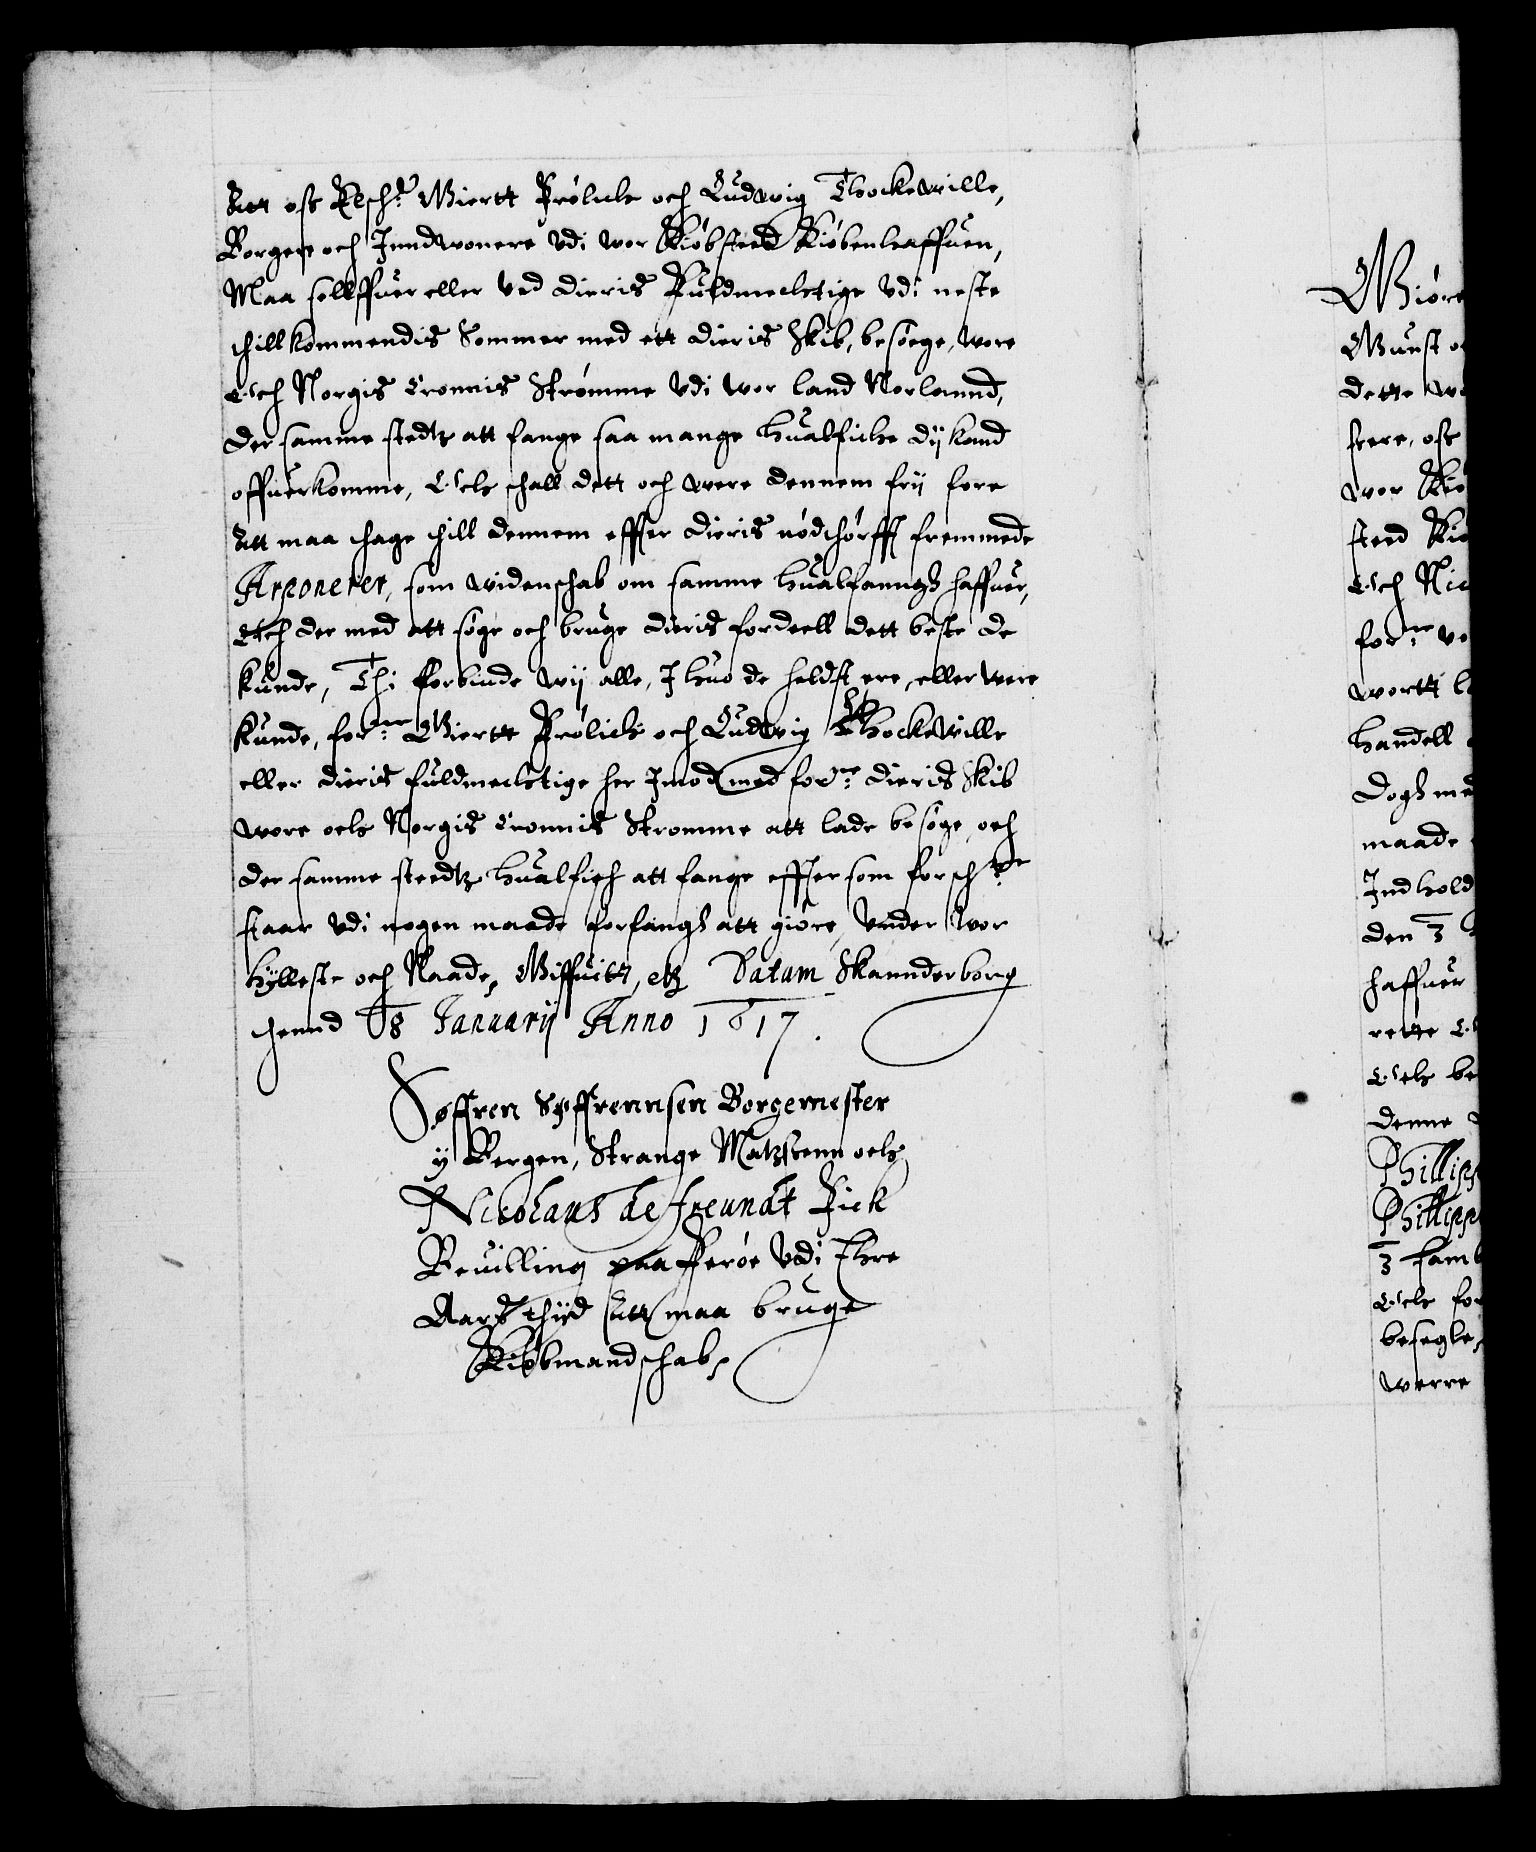 Att oss Elsch: Giertt Frölich och Ludwig Thockewille,
Borgere och Inndwonere Vdi wor Kiøbsteed Kiøbenhaffuen,
Maa sellffuer eller Ved dieris Fuldmechtige Vdi neste
thillkommendis Sommer med ett dieris Skib, besøege, wore
Och Norgis Cronnis Strømme Vdi wor land Norlannd,
der samme stedtz att fange saa mange Hualfiske dij kand
offuerkomme, Och schall dett och were dennem frij fore
Att maa thage thill dennem effter dieris nødthørfft fremmede
Arponerer, som widenschab om samme Hualfanngh haffuer,
Och der med att søge och bruge dieris fordeell dett beste de
kunde, Thi forbiude wij alle, I huo de heldst ere, eller were
kunde, for:ne Giertt Frölich och Ludwig Thockewille
eller dieris fuldmechtige her Imod med for:ne dieris Skib
wore och Norgis Cronnis Stromme att lade besøge, och
der samme steedtz Hualfisch att fange effter som forsch:ne
staar Vdi nogen maade forfangh att giøre, Vnder wor
Hylleste och Naade, Giffuitt, etz Datum Skannderborg
thennd 18 Januarij Anno 1617.
Søffren Søffrennsen Borgemester
y Bergen, Strange Matzsenn och
Nicolaus de freundt Fick
Beuilling paa Fferøe Vdi Thre
Aars Thijd Att maa bruge
Kiøbmandschab,
Giøre
Gunst o
dette w
stere, oss
wor Kiø
steed Kiø
Och Nic
for:ne
wortt
Handell
Dogh med
maade
Indhold
den 3
haffuer
rette
Och be
denne
Phillip
Phillipp
3
Och for
besegle,
werre